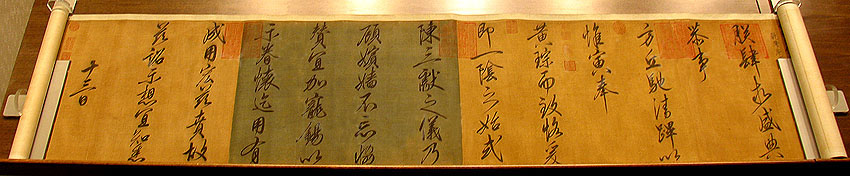 朕肆求盛典
恭事
方丘馳清蹕以
惟寅奉
黃琮而致恪爰
即一陰之始式
陳三獻之儀乃
顧嬪嬙不忘
贊宜加寵錫以
示眷懷迄用有
成用宏茲賁故
茲詔示想宜知悉
十三日